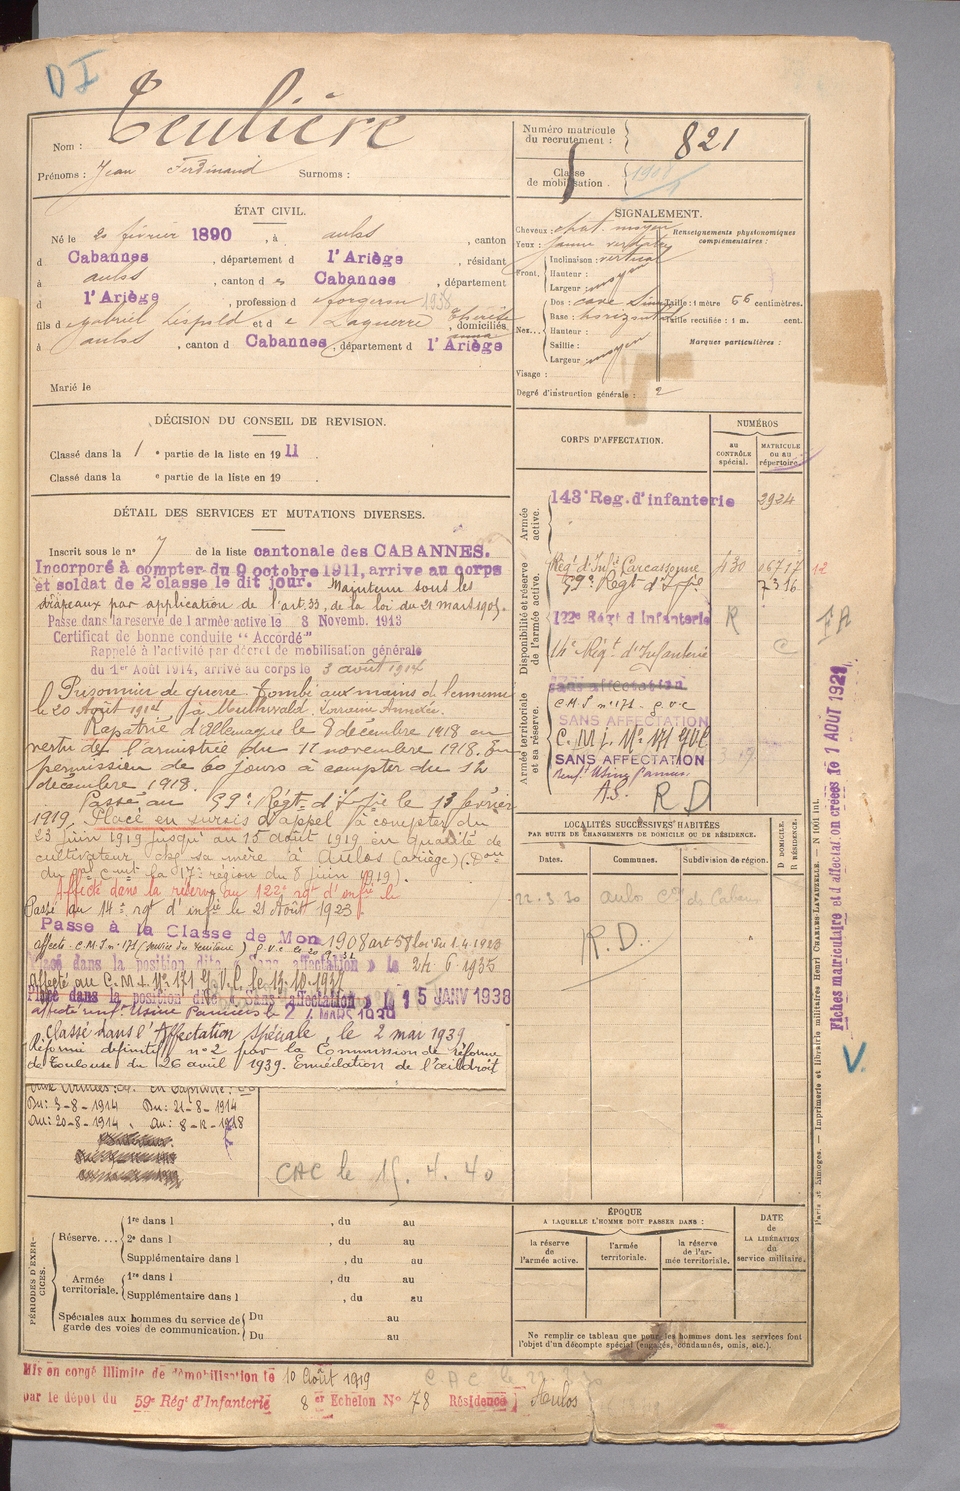 D I
Nom : Teulière
Prénoms : Jean Ferdinand Surnoms :
Numéro matricule du recrutement : 821
Classe de mobilisation. 1908
ÉTAT CIVIL.
Né le 20 février 1890, à Aulos, canton
d Cabannes, département d l'Ariège, résidant
à Aulos, canton d es Cabannes, département
d l'Ariège, profession d forgeron 1938
fils d e Gabriel Léopold et d e Laguerre Thérèse Anna, domiciliés
à Aulos, canton d Cabannes, département d l'Ariège
Marié le
SIGNALEMENT.
Cheveux : chat. moyen
Yeux : jaune verdâtre
Front, Inclinaison : vertical
Hauteur : moyen
Largeur :
Nez, Dos : cave
Base : horizontal
Hauteur :
Saillie :
Largeur : moyen
Visage :
Renseignements physionomiques complémentaires :
Taille : 1 mètre 66 centimètres.
Taille rectifiée : 1 m. cent.
Marques particulières :
Degré d'instruction générale : 2
DÉCISION DU CONSEIL DE REVISION.
Classé dans la 1 e partie de la liste en 19 11.
Classé dans la e partie de la liste en 19
DÉTAIL DES SERVICES ET MUTATIONS DIVERSES.
Inscrit sous le n° 7 de la liste cantonale des CABANNES.
Incorporé à compter du 9 octobre 1911, arrive au corps
et soldat de 2e classe le dit jour. Maintenu sous les
drapeaux par application de l'art. 33, de la loi du 21 mars 1905.
Passé dans la réserve de l'armée active le 8 Novemb. 1913
Certificat de bonne conduite "Accordé"
Rappelé à l'activité par décret de mobilisation générale
du 1er Août 1914, arrivé au corps le 3 août 1914
Prisonnier de guerre tombé aux mains de l'ennemi
le 20 Août 1914 à Lorraine Annexée.
Rapatrié d'Allemagne le 8 décembre 1918 en
vertu de l'armistice du 11 novembre 1918. En
permission de 60 jours à compter du 12
décembre 1918.
Passé au 59e Régt d'Ifie le 13 février
1919. Placé en sursis d'appel à compter du
23 juin 1919 jusqu'au 15 août 1919 en qualité de
cultivateur, chez sa mère à Aulos (Ariège) (
du la 17e région du 8 juin 1919).
Affecté dans la réserve au 122e rgt d'infie le
Passé au 14e rgt d'infie le 21 Août 1923
Passé à la Classe de Mon 1908 art 58 loi du 1.4.1923
affecté C.M.I n° 171 (service du territoire) g.v.c
Placé dans la position dite « Sans affectation » le 24 6 1935
Affecté au C.M.I. N° 171 G.V.C. le 13.10.1937
Placé dans la position dite « Sans affectation » le 15 JANV 1938
affecté renft Usine Pamiers le 2 MARS 1939
Classé dans l'Affectation spéciale, le 2 mar 1939
Réformé définitif n° 2 par la Commission de réforme
de Toulouse du 26 avril 1939. Enucléation de l'œil droit
Du : 3-8-1914 Du : 21-8-1914
Au : 20-8-1914. Au : 8-12-1918
CAC le 15.4.40
CORPS D'AFFECTATION.
NUMÉROS
au CONTRÔLE spécial.
MATRICULE ou au répertoire.
Armée active.
143e Reg. d'infanterie 2934
Disponibilité et réserve de l'armée active.
Régt d'Infie Carcassonne 430
59e Régt d'Ifie 7316
122e Régt d'Infanterie R
14e Régt d'Infanterie C
Armée territoriale et sa réserve.
sans affectation
C.M.I n° 171 - g.v.c
SANS AFFECTATION
C.M.I. N° 171 GVC
SANS AFFECTATION
renft Usine Pamiers
A.S. R D
LOCALITÉS SUCCESSIVES HABITÉES
PAR SUITE DE CHANGEMENTS DE DOMICILE OU DE RÉSIDENCE.
Dates. Communes. Subdivision de région. D DOMICILE. R RÉSIDENCE.
22-3-30 Aulos
R.D.
Fiches matriculaire et d'affectation créées le 1 AOUT 1921
V.
Paris et Limoges. — Imprimerie et librairie militaires Henri CHARLES-LAVAUZELLE.
PÉRIODES D'EXERCICES.
Réserve. 1re dans l , du au
2e dans l , du au
Supplémentaire dans l , du au
Armée territoriale. 1re dans l , du au
Supplémentaire dans l , du au
Spéciales aux hommes du service de garde des voies de communication. Du au
Du au
ÉPOQUE
A LAQUELLE L'HOMME DOIT PASSER DANS :
la réserve de l'armée active.
l'armée territoriale.
la réserve de l'armée territoriale.
DATE de LA LIBÉRATION du service militaire.
Ne remplir ce tableau que pour les hommes dont les services font l'objet d'un décompte spécial (engagés, condamnés, omis, etc.).
Mis en congé illimité de démobilisation le 10 Août 1919
par le dépôt du 59e Rég' d'Infanterie 8 er Echelon N° 78 Résidence Aulos